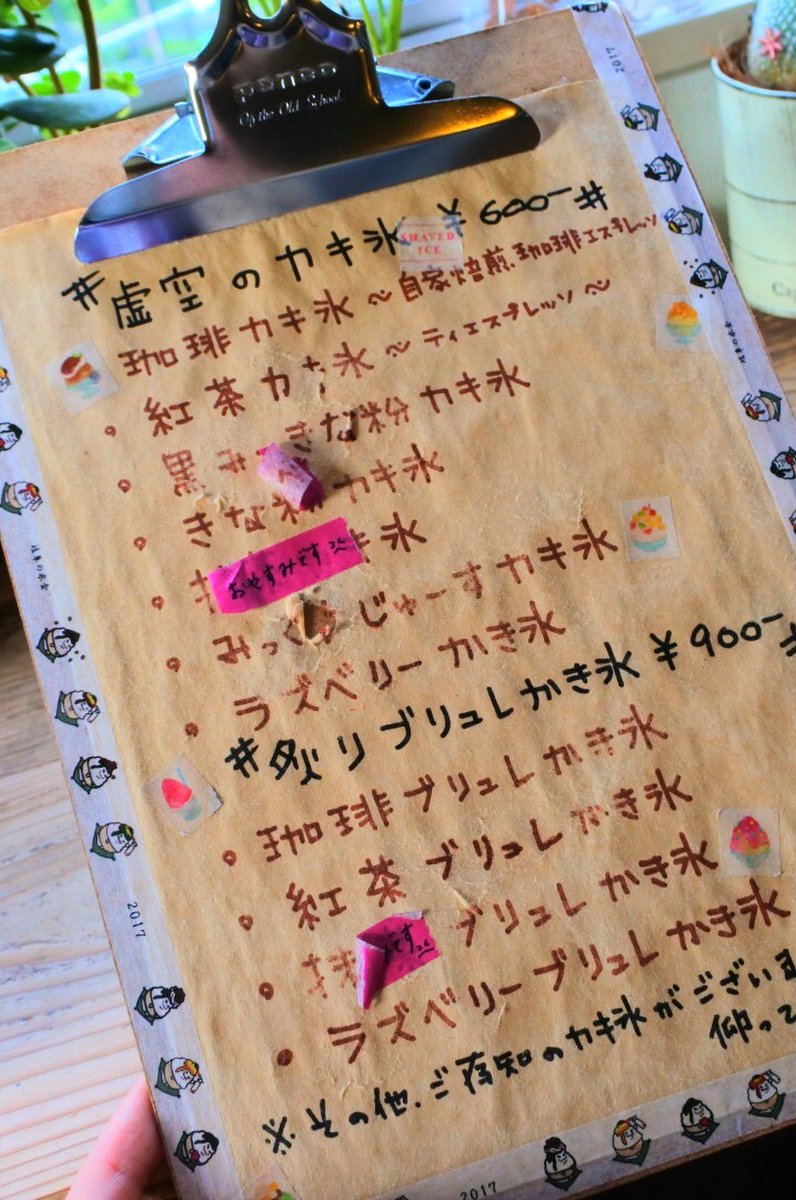 penco
On the Old School.
#虚空のカキ氷 ¥600-#
SHAVED
ICE
珈琲カキ氷〜自家焙煎珈琲エスプレッソ
・紅茶カキ氷〜ティエスプレッソ〜
・黒み きな粉カキ氷
・きな粉カキ氷
・抹 キ氷
おやすみです
・みっ じゅーすカキ氷
・ラズベリーかき氷
#炙りブリュレかき氷¥900-#
・珈琲ブリュレかき氷
・紅茶ブリュレかき氷
・抹 ブリュレかき氷
です
・ラズベリーブリュレかき氷
※その他、ご存知のカキ氷がございま
仰って
2017
2017
2017